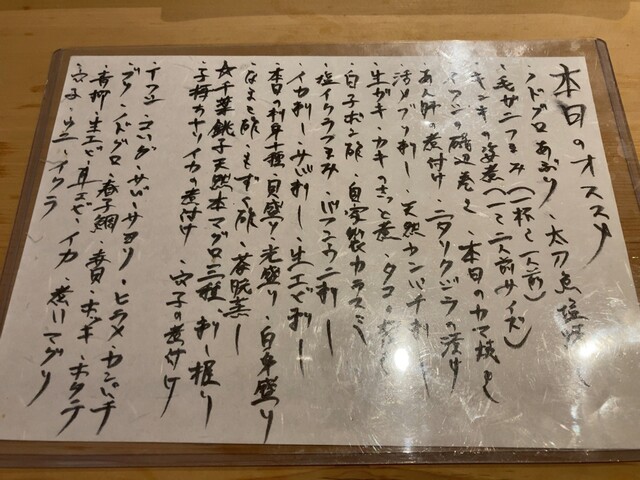 本日のオススメ
・ノドグロあぶり・太刀魚塩焼き
・毛ガニつまみ(一杯と一人前)
・キンキの姿煮(一~二人前サイズ)
・イワシの磯辺巻き・本日のカマ焼き
・あん肝の煮付け・ニタリクジラの漬け
・活〆ブリ刺し・天然カンパチ刺し
・生ガキ・カキのさっと煮・タコの
・白子ポン酢・自家製カラスミ
・塩イクラつまみ・バフンウニ刺し
・イカ刺し・サバ刺し・生エビ刺し
・本日の刺身十種・貝盛り・光盛り・白身盛り
・なまこ酢・もずく酢・茶碗蒸し
☆千葉銚子天然本マグロ三種 刺し・握り
・子持ちヤリイカの煮付け・穴子の煮付け
・イワシ・コハダ・サバ・サヨリ・ヒラメ・カンパチ
・ブリ・ノドグロ・春子鯛・赤貝・ホッキ・ホタテ
・青柳・生エビ・車エビ・イカ・煮ハマグリ
・穴子・ウニ・イクラ